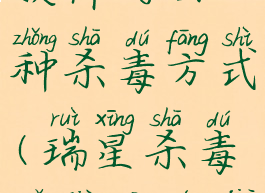 zhǒng shā dú fāng shì
种杀毒方式
ruì xīng shā dú
(瑞星杀毒